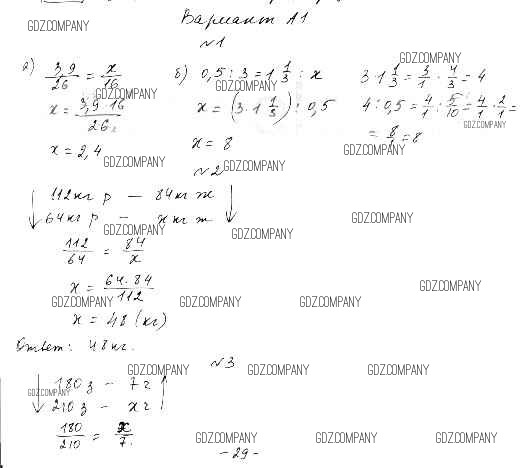 GDZ.COMPANY
Вариант А1
№1
а) 3,9/26 = x/16
x = 3,9·16/26
x = 2,4
б) 0,5 : 3 = 1 1/3 : x
x = (3·1 1/3) : 0,5
x = 8
3·1 1/3 = 3/1 · 4/3 = 4
4 : 0,5 = 4/1 : 5/10 = 4/1 · 2/1 =
= 8/1 = 8
GDZ.COMPANY
GDZ.COMPANY
GDZ.COMPANY
GDZ.COMPANY
GDZ.COMPANY
GDZ.COMPANY
GDZ.COMPANY
№2
GDZ.COMPANY
↓ 112 кг р – 84 кг ж ↓
64 кг р – x кг ж
GDZ.COMPANY
GDZ.COMPANY
GDZ.COMPANY
112/64 = 84/x
x = 64·84/112
GDZ.COMPANY
GDZ.COMPANY
GDZ.COMPANY
GDZ.COMPANY
x = 48 (кг)
Ответ: 48 кг.
№3
GDZ.COMPANY
GDZ.COMPANY
GDZ.COMPANY
↓ 180 з – 7 г ↑
GDZ.COMPANY
210 з – x г
180/210 = x/7.
GDZ.COMPANY
GDZ.COMPANY
GDZ.COMPANY
- 29 -